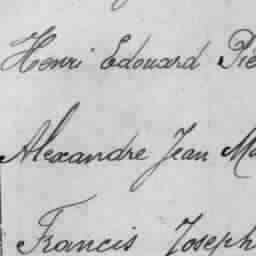 Henri Edouard Pie
Alexandre Jean Ma
Francis Joseph